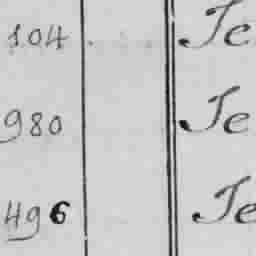 104 Te
980 Te
496 Te